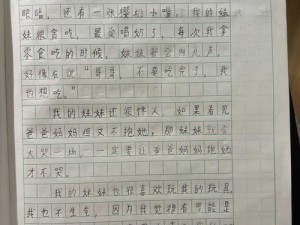 眼睛，还有一张樱桃小嘴。我的妹
妹很贪吃，最爱喝奶了，每次我拿
零食吃的时候，妹妹都会叫几声，
好像在说“哥哥，不要吃完了，我
也想吃。”
我的妹妹还很怜人，如果看见
爸爸妈妈但又不抱她，那妹妹就会
大哭一场，一定要让爸爸妈妈抱她
才不哭。
我的妹妹也很喜欢玩我的玩具
我也不生气，因为我觉得有可能是